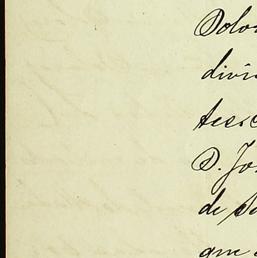 Dolo
divi
tesc
D. Jo
de S
que